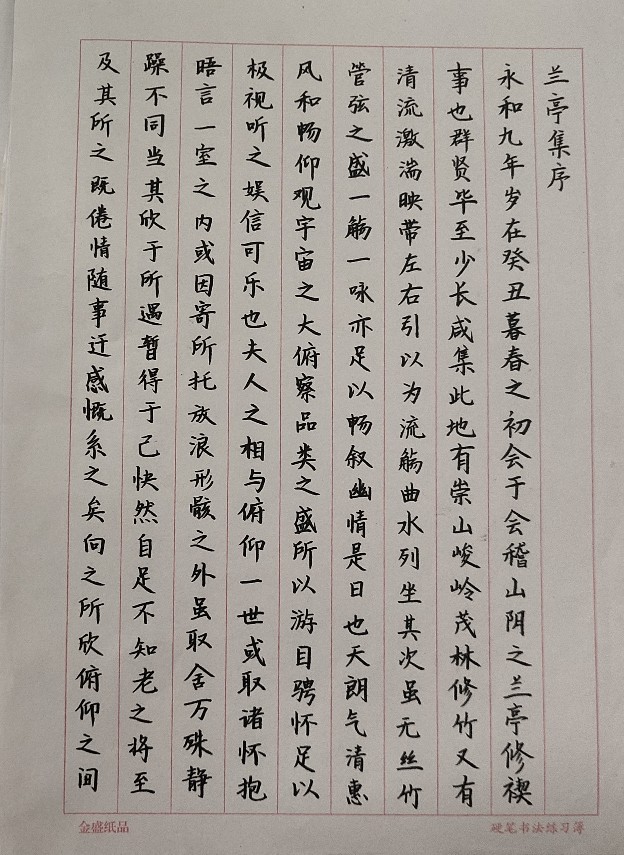 兰亭集序
永和九年岁在癸丑暮春之初会于会稽山阴之兰亭修禊
事也群贤毕至少长咸集此地有崇山峻岭茂林修竹又有
清流激湍映带左右引以为流觞曲水列坐其次虽无丝竹
管弦之盛一觞一咏亦足以畅叙幽情是日也天朗气清惠
风和畅仰观宇宙之大俯察品类之盛所以游目骋怀足以
极视听之娱信可乐也夫人之相与俯仰一世或取诸怀抱
晤言一室之内或因寄所托放浪形骸之外虽取舍万殊静
躁不同当其欣于所遇暂得于己快然自足不知老之将至
及其所之既倦情随事迁感慨系之矣向之所欣俯仰之间
金盛纸品
硬笔书法练习簿